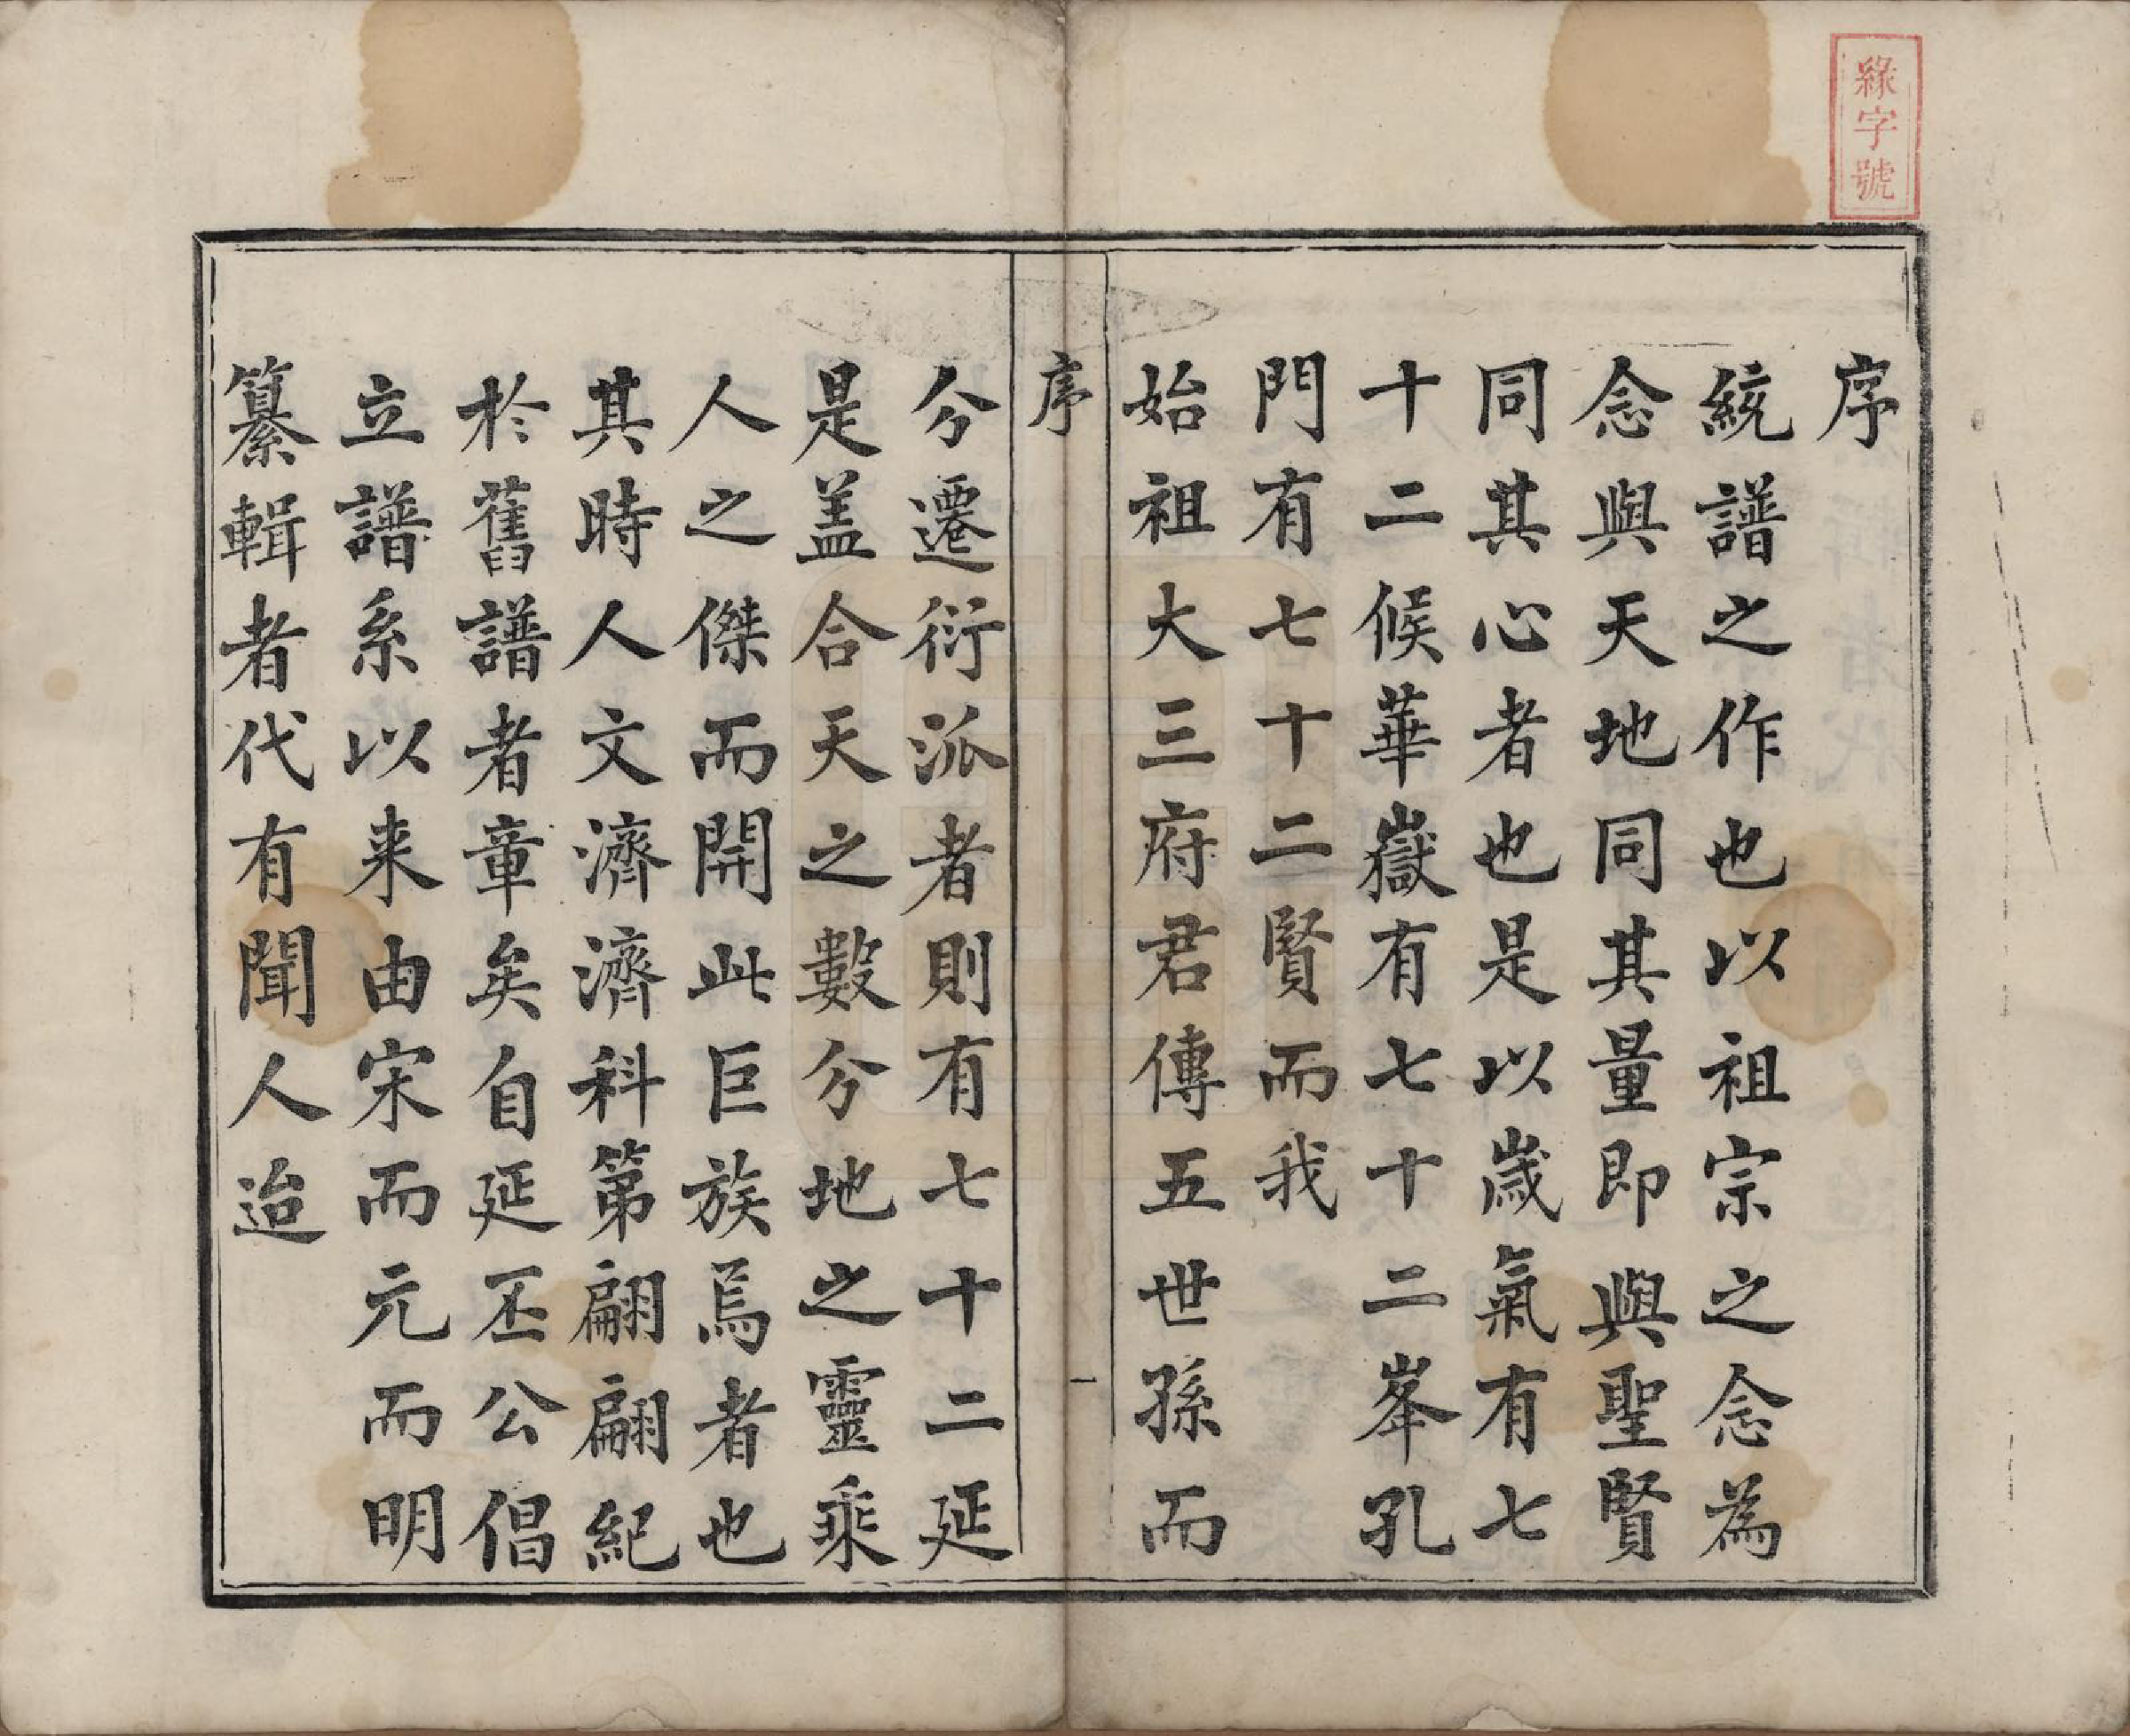 緣字號
序
統譜之作也以祖宗之念為
念與天地同其量即與聖賢
同其心者也是以歲氣有七
十二候華嶽有七十二峯孔
門有七十二賢而我
始祖大三府君傳五世孫而
序
一
今遷衍派者則有七十二延
是盖合天之數分地之靈乘
人之傑而開此巨族焉者也
其時人文濟濟科第翩翩紀
於舊譜者章矣自延丕公倡
立譜系以来由宋而元而明
纂輯者代有聞人迨